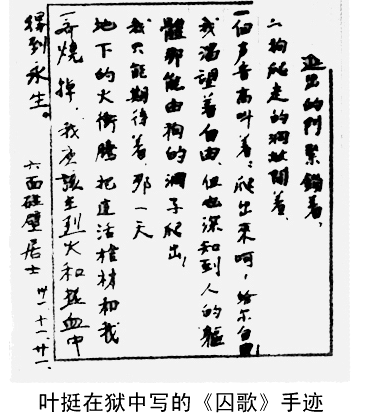 出的門緊鎖着,
狗爬走的洞敞開着,
一個声音高叫着:爬出來呵,給尔自由!
我渴望着自由,但也深知到人的軀
體那能由狗的洞子爬出!
我只能期待着,那一天
地下的火衝騰,把這活棺材和我
一齊燒掉,我应該在烈火和熱血中
得到永生。
六面碰壁居士 卅一.十一.廿一
叶挺在狱中写的《囚歌》手迹